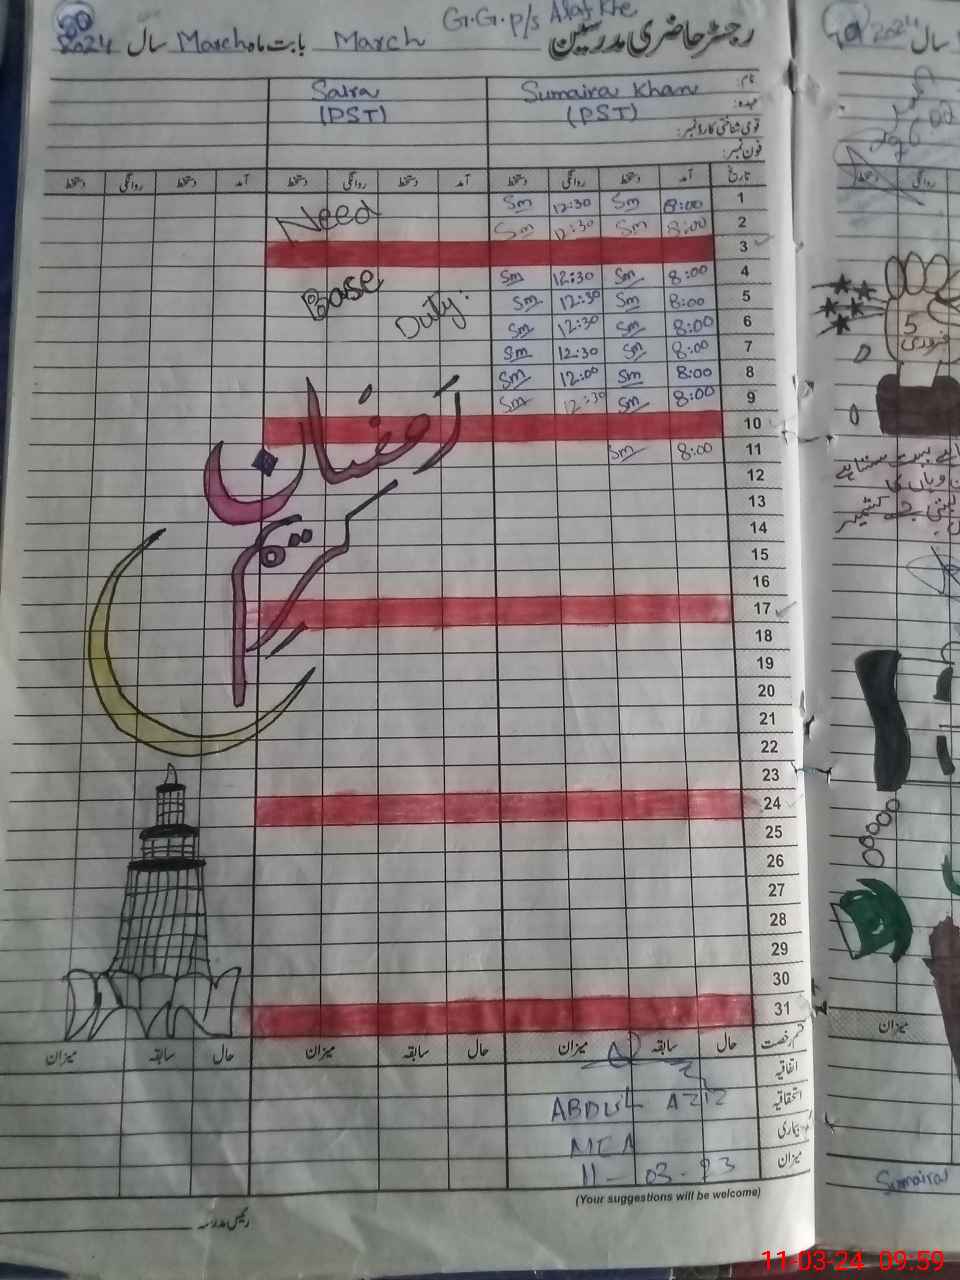 G.G.P/S
رجسٹر حاضری مدرسین
March بابت ماہ March سال 2024
30
نام: Sumaira Khan Saira
عہدہ: (PST) (PST)
قومی شناختی کارڈ نمبر:
فون نمبر:
تاریخ آمد دستخط روانگی دستخط آمد دستخط روانگی دستخط آمد دستخط روانگی دستخط
1 8:00 Sm 12:30 Sm
Need
2 8:00 Sm 12:30 Sm
3
4 8:00 Sm 12:30 Sm
Base
5 8:00 Sm 12:30 Sm
Duty:
6 8:00 Sm 12:30 Sm
7 8:00 Sm 12:30 Sm
8 8:00 Sm 12:00 Sm
9 8:00 Sm 12:30 Sm
10
11 8:00 Sm
رمضان
12
13
کریم
14
15
16
17
18
19
20
21
22
23
24
25
26
27
28
29
30
31
قسم رخصت حال سابقہ میزان حال سابقہ میزان حال سابقہ میزان
اتفاقیہ
استحقاقیہ
ABDUL AZIZ
بیماری
MEA
میزان
11-03-23
(Your suggestions will be welcome)
رئیس مدرسہ
سال 2024
دستخط روانگی
5 فروری
میزان
Sumaira
11-03-24 09:59